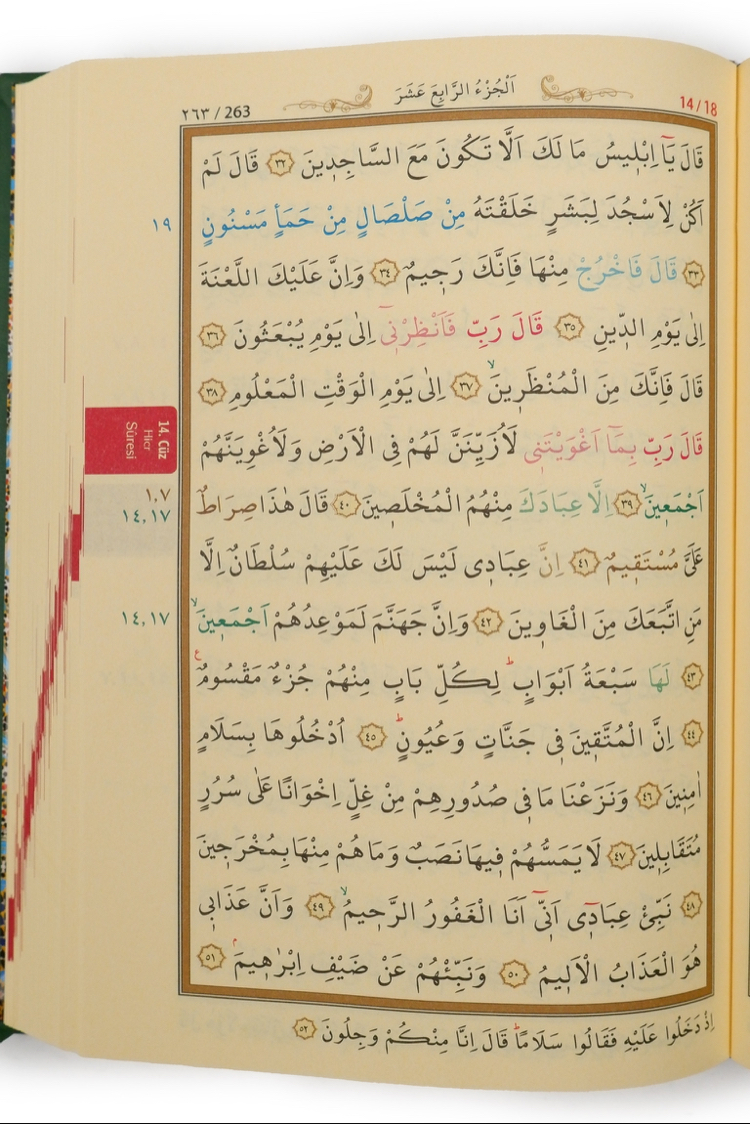 ٢٦٣ / 263
اَلْجُزْءُ الرَّابِعَ عَشَرَ
14/18
قَالَ يَٓا اِبْل۪يسُ مَا لَكَ اَلَّا تَكُونَ مَعَ السَّاجِد۪ينَ ﴿٣٢﴾ قَالَ لَمْ
اَكُنْ لِاَسْجُدَ لِبَشَرٍ خَلَقْتَهُ مِنْ صَلْصَالٍ مِنْ حَمَأٍ مَسْنُونٍ
١٩
﴿٣٣﴾ قَالَ فَاخْرُجْ مِنْهَا فَاِنَّكَ رَج۪يمٌ ﴿٣٤﴾ وَاِنَّ عَلَيْكَ اللَّعْنَةَ
اِلٰى يَوْمِ الدّ۪ينِ ﴿٣٥﴾ قَالَ رَبِّ فَاَنْظِرْن۪ٓي اِلٰى يَوْمِ يُبْعَثُونَ ﴿٣٦﴾
قَالَ فَاِنَّكَ مِنَ الْمُنْظَر۪ينَۙ ﴿٣٧﴾ اِلٰى يَوْمِ الْوَقْتِ الْمَعْلُومِ ﴿٣٨﴾
قَالَ رَبِّ بِمَٓا اَغْوَيْتَن۪ي لَاُزَيِّنَنَّ لَهُمْ فِي الْاَرْضِ وَلَاُغْوِيَنَّهُمْ
14. Cüz
Hicr
Sûresi
اَجْمَع۪ينَۙ ﴿٣٩﴾ اِلَّا عِبَادَكَ مِنْهُمُ الْمُخْلَص۪ينَ ﴿٤٠﴾ قَالَ هٰذَا صِرَاطٌ
١،٧
١٤،١٧
عَلَيَّ مُسْتَق۪يمٌ ﴿٤١﴾ اِنَّ عِبَاد۪ي لَيْسَ لَكَ عَلَيْهِمْ سُلْطَانٌ اِلَّا
مَنِ اتَّبَعَكَ مِنَ الْغَاو۪ينَ ﴿٤٢﴾ وَاِنَّ جَهَنَّمَ لَمَوْعِدُهُمْ اَجْمَع۪ينَۙ
١٤،١٧
﴿٤٣﴾ لَهَا سَبْعَةُ اَبْوَابٍۜ لِكُلِّ بَابٍ مِنْهُمْ جُزْءٌ مَقْسُومٌ ع
﴿٤٤﴾ اِنَّ الْمُتَّق۪ينَ ف۪ي جَنَّاتٍ وَعُيُونٍۜ ﴿٤٥﴾ اُدْخُلُوهَا بِسَلَامٍ
اٰمِن۪ينَ ﴿٤٦﴾ وَنَزَعْنَا مَا ف۪ي صُدُورِهِمْ مِنْ غِلٍّ اِخْوَانًا عَلٰى سُرُرٍ
مُتَقَابِل۪ينَ ﴿٤٧﴾ لَا يَمَسُّهُمْ ف۪يهَا نَصَبٌ وَمَا هُمْ مِنْهَا بِمُخْرَج۪ينَ
﴿٤٨﴾ نَبِّئْ عِبَاد۪ٓي اَنّ۪ٓي اَنَا الْغَفُورُ الرَّح۪يمُۙ ﴿٤٩﴾ وَاَنَّ عَذَاب۪ي
هُوَ الْعَذَابُ الْاَل۪يمُ ﴿٥٠﴾ وَنَبِّئْهُمْ عَنْ ضَيْفِ اِبْرٰه۪يمَۢ ﴿٥١﴾
اِذْ دَخَلُوا عَلَيْهِ فَقَالُوا سَلَامًاۜ قَالَ اِنَّا مِنْكُمْ وَجِلُونَ ﴿٥٢﴾